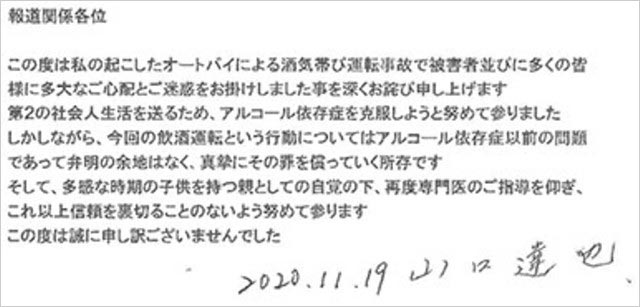 報道関係各位
この度は私の起こしたオートバイによる酒気帯び運転事故で被害者並びに多くの皆
様に多大なご心配とご迷惑をお掛けしました事を深くお詫び申し上げます
第2の社会人生活を送るため、アルコール依存症を克服しようと努めて参りました
しかしながら、今回の飲酒運転という行動についてはアルコール依存症以前の問題
であって弁明の余地はなく、真摯にその罪を償っていく所存です
そして、多感な時期の子供を持つ親としての自覚の下、再度専門医のご指導を仰ぎ、
これ以上信頼を裏切ることのないよう努めて参ります
この度は誠に申し訳ございませんでした
2020.11.19 山口達也